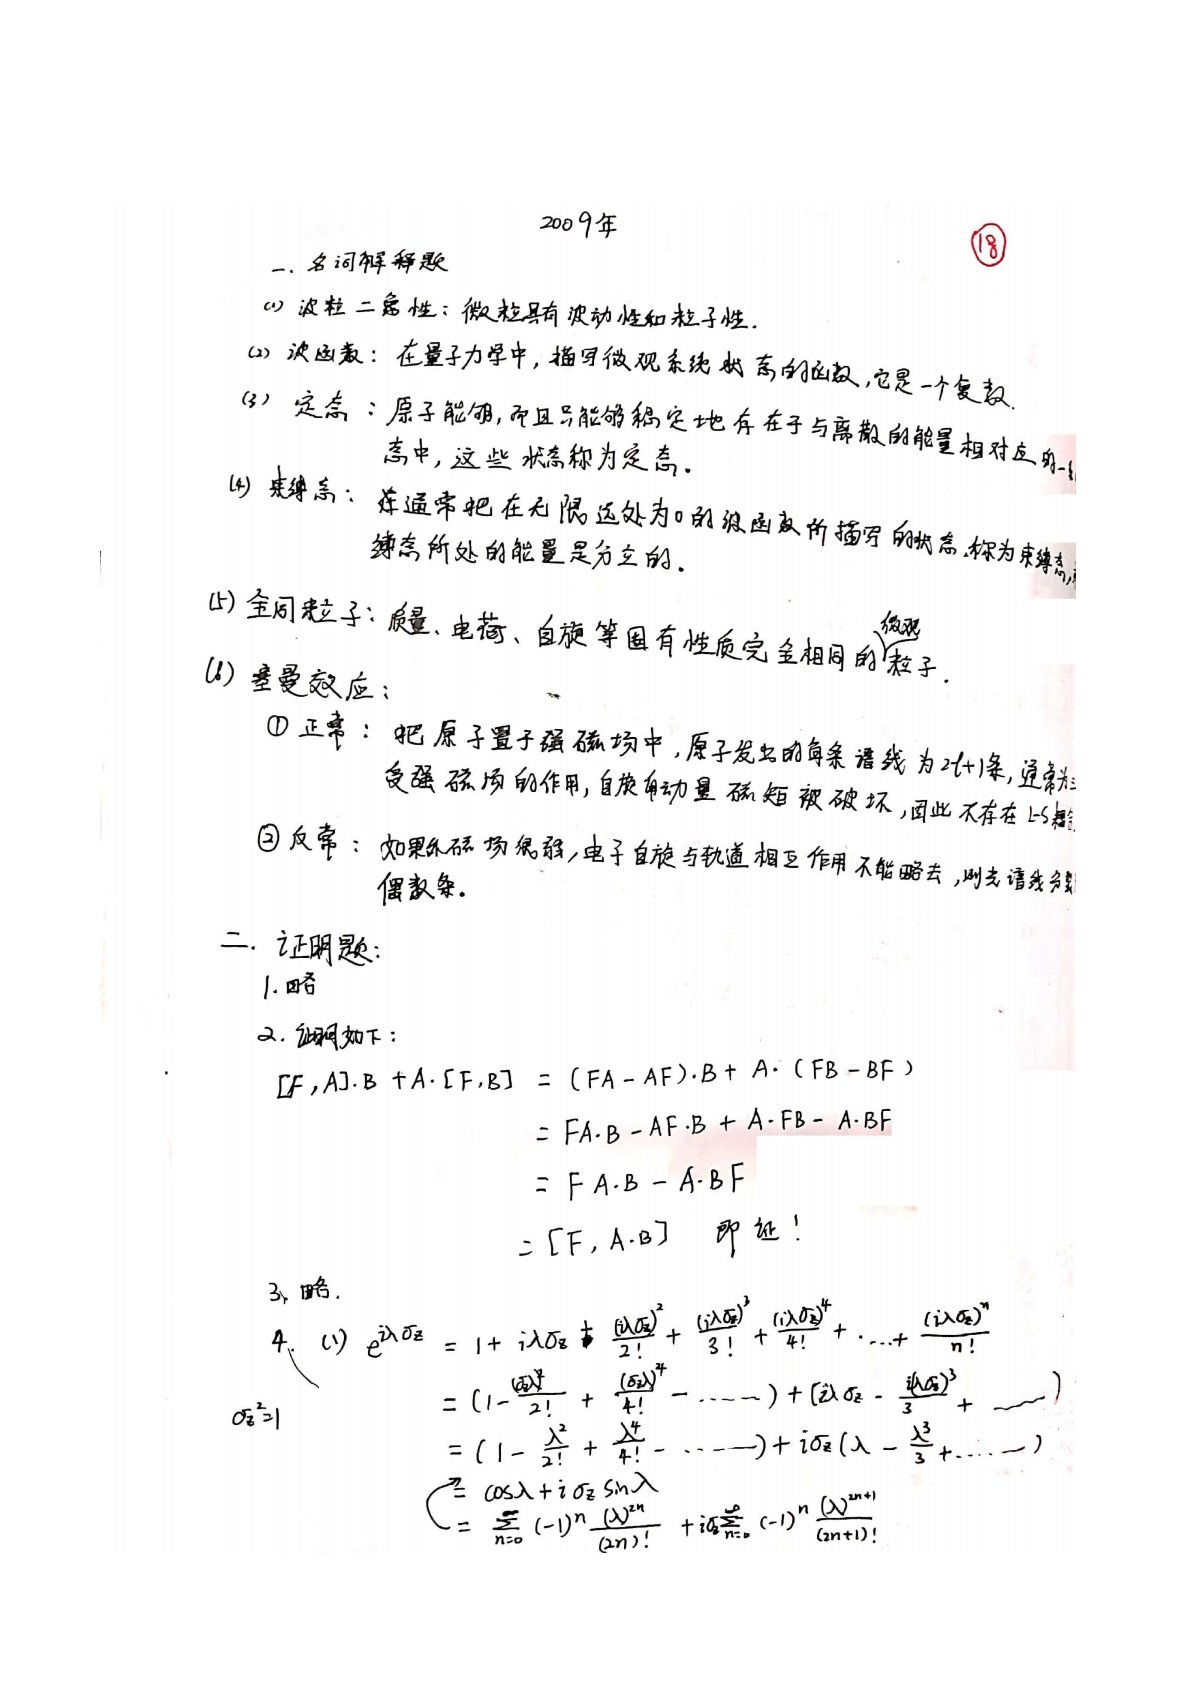 2009年
18
一. 名词解释题
(1) 波粒二象性: 微粒具有波动性和粒子性.
(2) 波函数: 在量子力学中, 描写微观系统状态的函数, 它是一个复数.
(3) 定态: 原子能够, 而且只能够稳定地存在于与离散的能量相对应的一
态中, 这些状态称为定态.
(4) 束缚态: 通常把在无限远处为0的波函数所描写的状态, 称为束缚态,
缚态所处的能量是分立的.
(5) 全同粒子: 质量、电荷、自旋等固有性质完全相同的微观粒子.
(6) 塞曼效应:
① 正常: 把原子置于强磁场中, 原子发出的每条谱线为2l+1条, 通常为三
受强磁场的作用, 自旋角动量磁矩被破坏, 因此不存在L-S耦合
② 反常: 如果磁场很弱, 电子自旋与轨道相互作用不能略去, 则光谱线分裂
偶数条.
二. 证明题:
1. 略
2. 证明如下:
[F,A]·B + A·[F,B] = (FA - AF)·B + A·(FB - BF)
= FA·B - AF·B + A·FB - A·BF
= F A·B - A·BF
= [F, A·B] 即证!
3、略.
4. (1) e^{iλσz} = 1 + iλσz + (iλσz)²/2! + (iλσz)³/3! + (iλσz)⁴/4! + ...+ (iλσz)ⁿ/n!
= (1 - (σzλ)²/2! + (σzλ)⁴/4! - ......) + (iλσz - i(λσz)³/3 + ......)
σz²=1
= (1 - λ²/2! + λ⁴/4! - ......) + iσz(λ - λ³/3 + ......)
= cosλ + iσz sinλ
= ∑_{n=0}^{∞} (-1)ⁿ (λ)^{2n}/(2n)! + iσz∑_{n=0}^{∞} (-1)ⁿ (λ)^{2n+1}/(2n+1)!